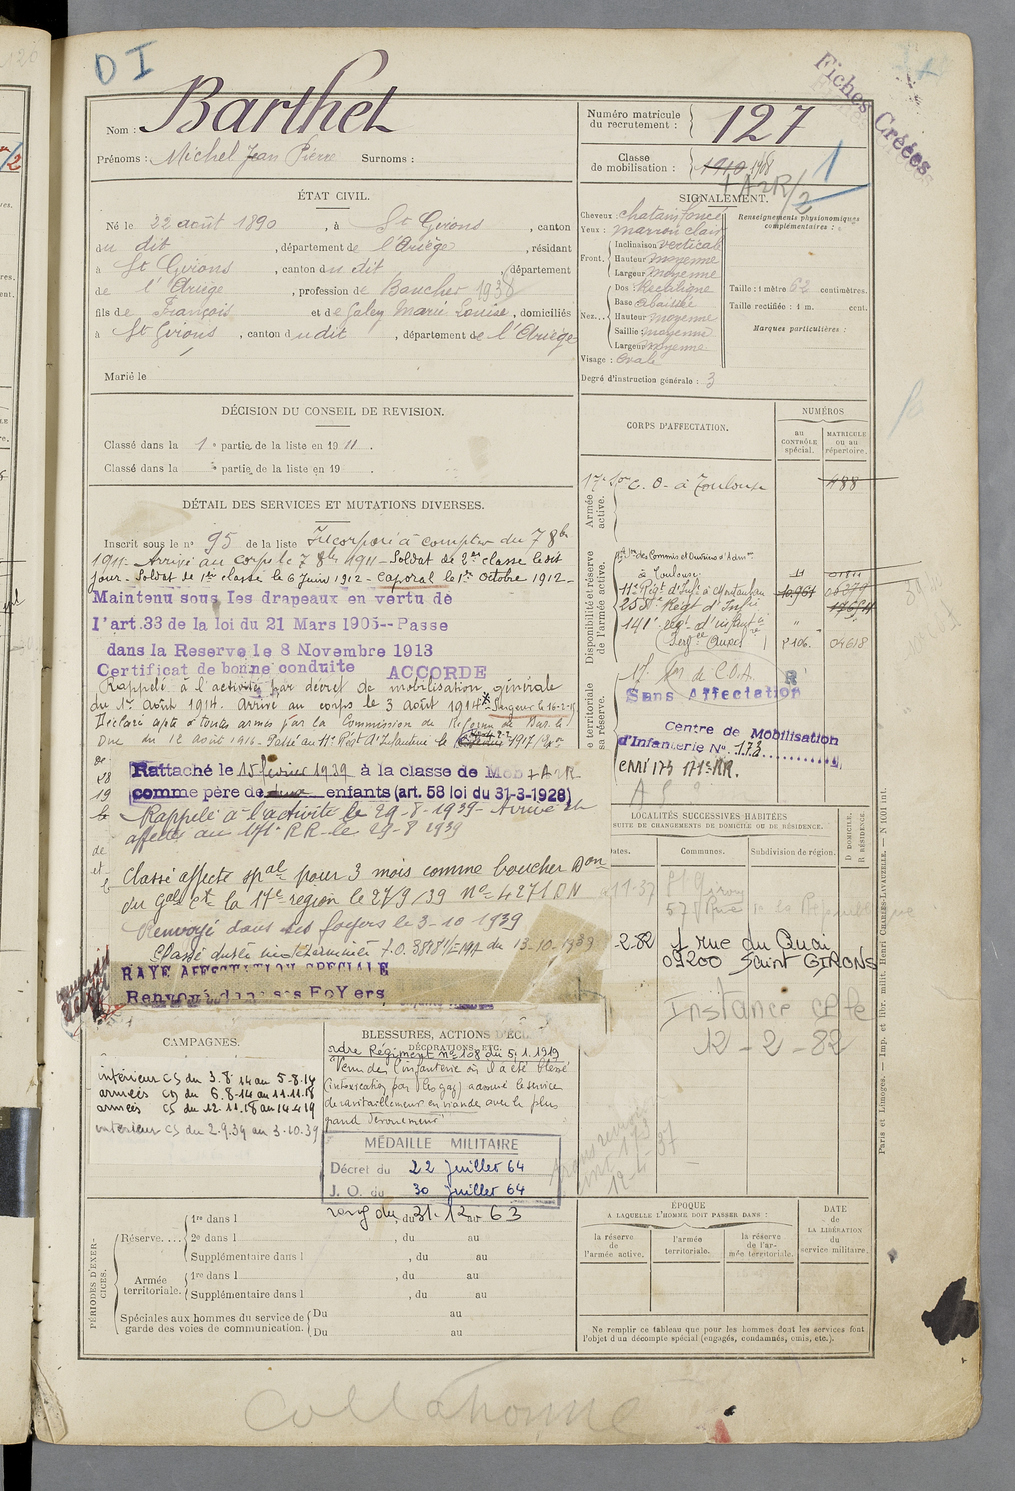 D I
Fiches Créées
Nom : Barthet
Prénoms : Michel Jean Pierre Surnoms :
Numéro matricule du recrutement : 127
Classe de mobilisation : 1910
1
+ A2R/2
ÉTAT CIVIL.
Né le 22 août 1890, à St Girons, canton
du dit, département de l'Ariège, résidant
à St Girons, canton du dit, département
de l'Ariège, profession de Boucher 1938
fils de François et de Galey Marie Louise, domiciliés
à St Girons, canton dudit, département de l'Ariège
Marié le
SIGNALEMENT.
Cheveux chatain foncé
Yeux : marron clair
Front. Inclinaison vertical
Hauteur moyenne
Largeur moyenne
Nez... Dos : Rectiligne
Base abaissée
Hauteur moyenne
Saillie : moyenne
Largeur moyenne
Visage : Ovale
Renseignements physionomiques complémentaires :
Taille : 1 mètre 62 centimètres.
Taille rectifiée : 1 m. cent.
Marques particulières :
Degré d'instruction générale : 3
DÉCISION DU CONSEIL DE REVISION.
Classé dans la 1e partie de la liste en 1911.
Classé dans la e partie de la liste en 19 .
DÉTAIL DES SERVICES ET MUTATIONS DIVERSES.
Inscrit sous le n° 95 de la liste Incorporé à compter du 7 8bre
1911. Arrivé au corps le 7 8bre 1911 - Soldat de 2me classe le dit
jour - Soldat de 1re classe le 6 Juin 1912 - Caporal le 1er Octobre 1912 -
Maintenu sous les drapeaux en vertu de
l'art.33 de la loi du 21 Mars 1905--Passe
dans la Reserve le 8 Novembre 1913
Certificat de bonne conduite ACCORDE
Rappelé à l'activité par décret de mobilisation générale
du 1er Août 1914. Arrivé au corps le 3 Août 1914 x Sergent le 16-2-15
Déclaré apte à toutes armes par la Commission de Réforme de Bar le
Duc du 12 Août 1916 - Passé au 11e Régt d'Infanterie le 1917
Rattaché le 15 février 1939 à la classe de Mob + A2R
comme père de enfants (art. 58 loi du 31-3-1928)
Rappelé à l'activité le 29-8-1939 - Arrivé et
affecté au 171e RR le 29-8 1939
Classé affecté spal pour 3 mois comme boucher Don
du Gal Ct la 17e région le 27/9/39 No 4271 DN
Renvoyé dans ses foyers le 3-10 1939
du 13-10-1939
RAYE AFFECTATION SPECIALE
Renvoyé dans ses FoYers
CORPS D'AFFECTATION.
NUMÉROS
AU CONTRÔLE spécial.
MATRICULE ou au répertoire.
Armée active.
17e Son C. O. à Toulouse 488
Disponibilité et réserve de l'armée active.
des Commis et Ouvriers d'Admon
à Toulouse
11e Régt d'Infie à Montauban
25 Régt d'Infie
141e regt d'infantie
P106 04618
Armée territoriale et sa réserve.
17e Son de C.O.A.
R
Sans Affectation
Centre de Mobilisation
d'Infanterie No. 173
CMI 173 171e RR.
LOCALITÉS SUCCESSIVES HABITÉES
SUITE DE CHANGEMENTS DE DOMICILE OU DE RÉSIDENCE.
Dates. Communes. Subdivision de région. D DOMICILE. R RÉSIDENCE.
11-37 St Girons
57 Rue de la République
2-82 1 rue du Quai
09200 Saint GIRONS
Instance CP fe
12 - 2 - 82
CAMPAGNES.
intérieur CS du 3.8.14 au 5-8-14
armées CD du 6.8-14 au 11.11.18
armées CS du 12.11.18 au 14.4.19
intérieur CS du 2.9.39 au 3.10.39
BLESSURES, ACTIONS D'ÉCLAT, DÉCORATIONS, ETC.
ordre Régiment no 108 du 5.1.1919
"Venu de l'infanterie où il a été blessé
(intoxication par les gaz) a assuré le service
de ravitaillement en viande avec le plus
grand dévouement"
MÉDAILLE MILITAIRE
Décret du 22 Juillet 64
J. O. du 30 juillet 64
rang du 31-12 63
12-4-37
PÉRIODES D'EXERCICES.
Réserve.... 1re dans l , du au
2e dans l , du au
Supplémentaire dans l , du au
Armée territoriale. 1re dans l , du au
Supplémentaire dans l , du au
Spéciales aux hommes du service de garde des voies de communication. Du au
Du au
ÉPOQUE
A LAQUELLE L'HOMME DOIT PASSER DANS :
la réserve de l'armée active.
l'armée territoriale.
la réserve de l'armée territoriale.
DATE DE LA LIBÉRATION du service militaire.
Ne remplir ce tableau que pour les hommes dont les services font
l'objet d'un décompte spécial (engagés, condamnés, omis, etc.).
Paris et Limoges. — Imp. et libr. milit. Henri CHARLES-LAVAUZELLE. — N 1601 int.